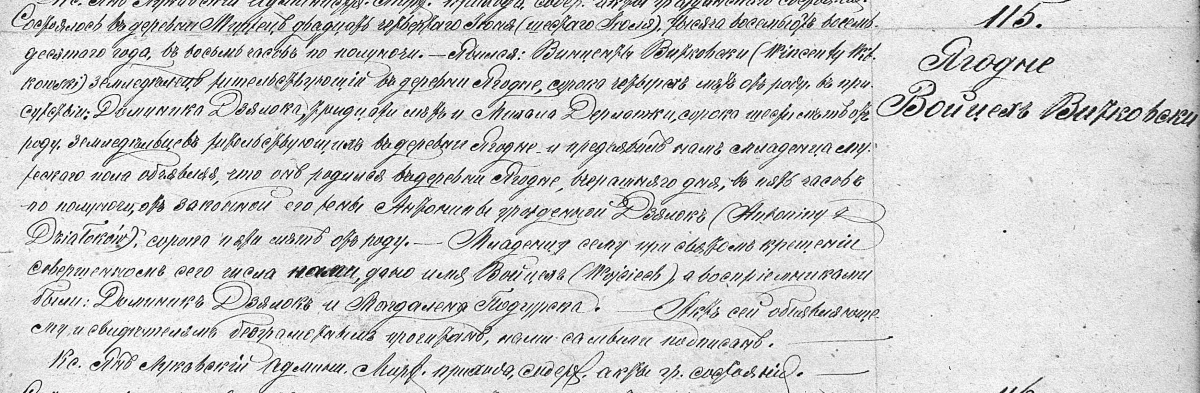 115.
Ягодне
Войцехъ Витковски
Состоялось въ деревни двадцать четвертого Іюня (шестого Іюля), тысяча восемьсотъ восемь-
десятого года, въ восемь часовъ по полуночи. — Явился: Винценты Витковски (Wincenty Wit-
kowski) земледѣлецъ жительствующій въ деревни Ягодне, сорока четырехъ лѣтъ отъ роду въ при-
сутствіи: Доминика Дзялока, тридцати лѣтъ и Михала сорока шести лѣтъ отъ
роду земледѣльцевъ жительствующихъ въ деревни Ягодне и предъявилъ намъ младенца му-
жескаго пола объявляя, что онъ родился въ деревни Ягодне, вчерашняго дня, въ пять часовъ
по полуночи, отъ законной его жены Антонины урожденной Дзялокъ (Antoniny z
Dziatoków), сорока пяти лѣтъ отъ роду. — Младенцу сему при святомъ крещеніи
совершенномъ сего числа нами, дано имя Войцехъ (Wojciech), а воспріемниками
были: Доминикъ Дзялокъ и Магдалена Подгурска. — Актъ сей объявляюще-
му и свидѣтелямъ безграматнымъ прочитанъ, нами самыми подписанъ. —
Кс. Янъ Луковскій Админ. прихода, содерж. акты гр. состоянія. —
116.